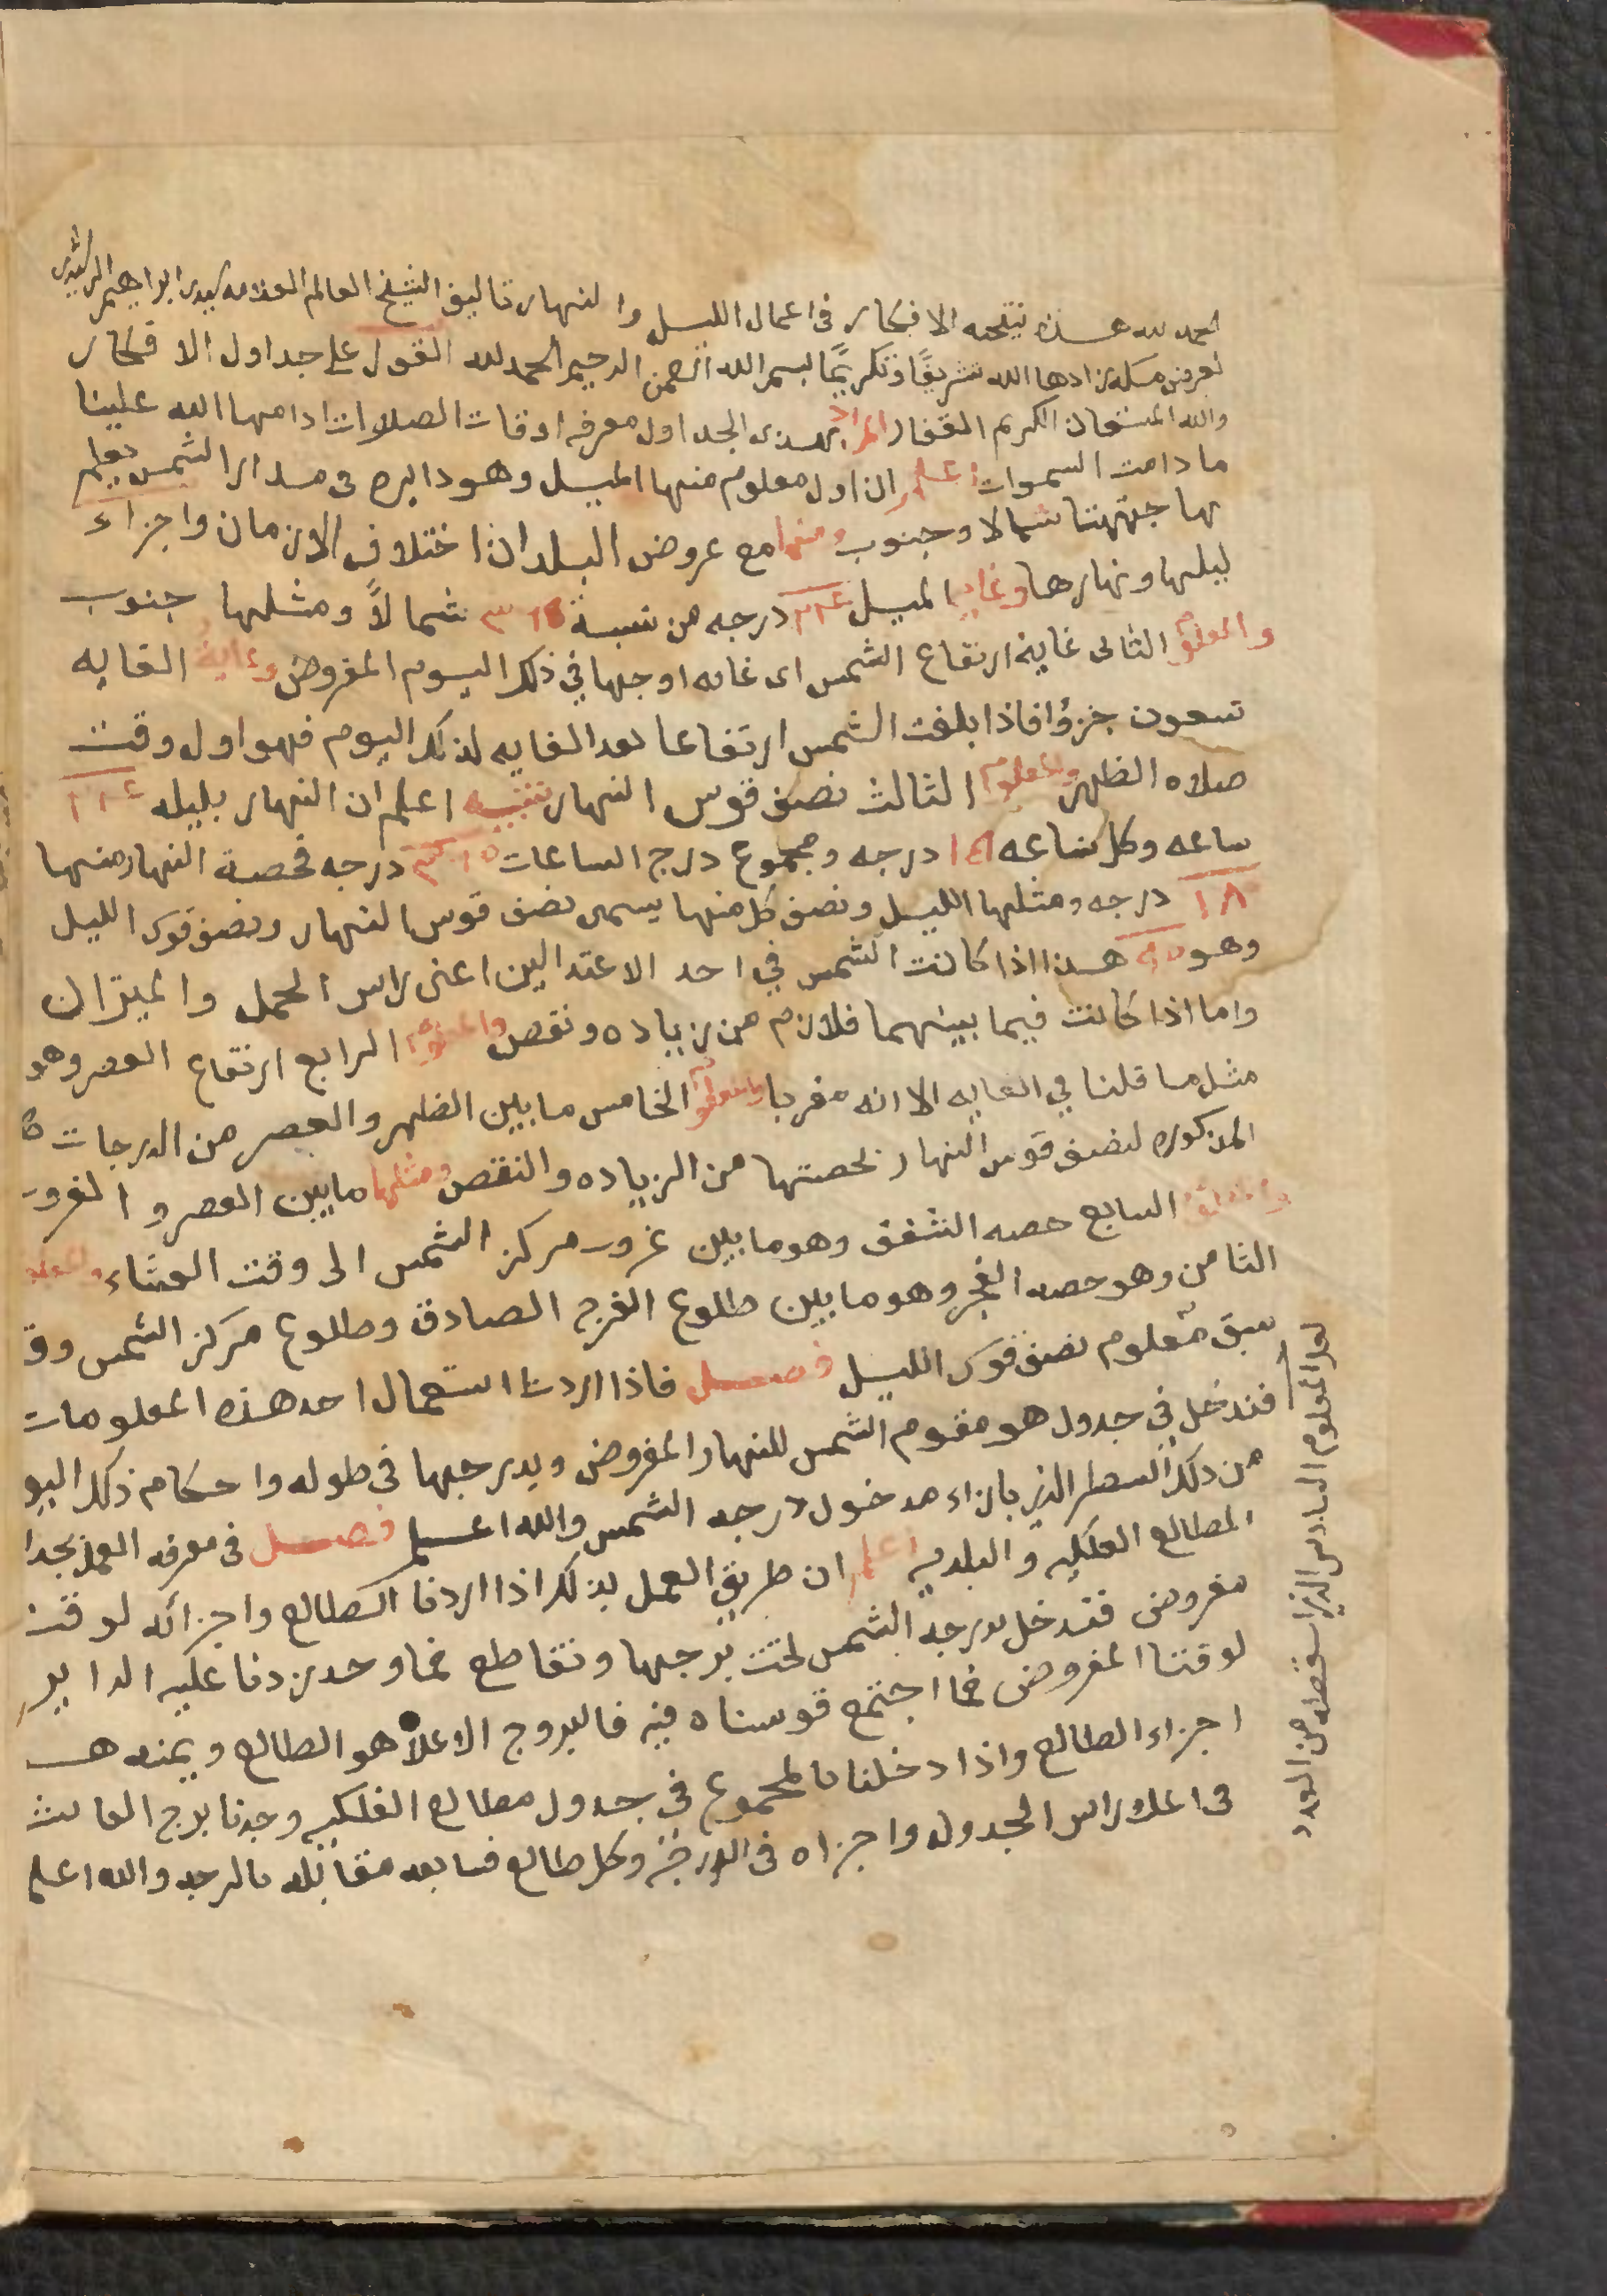 الحمد لله هذه نتيجه الافكار فى اعمال الليل والنهار تاليف الشيخ العالم العلامه سيدى ابراهيم الرشيدى
لعرض مكه زادها الله تشريفًا وتكريمًا بسم الله الرحمن الرحيم الحمد لله القول على جداول الافكار
والله المستعان الكريم الغفار المراد بهذى الجداول معرفه اوقات الصلوات ادامها الله علينا
ما دامت السموات اعلم ان اول معلوم منها الميل وهو دايره فى مدار الشمس يعلم
بها جهتها شمالا وجنوب ومنها مع عروض البلدان اختلاف الازمان واجزاء
ليلها ونهارها وغاية الميل ٢٤ درجه من نسبة شمالاً ومثلها جنوب
والمعلوم الثانى غاية ارتفاع الشمس اى غايه اوجها في ذلك اليوم المفروض وغاية الغايه
تسعون جزؤا فاذا بلغت الشمس ارتفاعا بعد الغايه لذلك اليوم فهو اول وقت
صلاه الظهر والمعلوم الثالث نصف قوس النهار تنبيه اعلم ان النهار بليله
ساعه وكل ساعه درجه ومجموع درج الساعات درجه فحصة النهار منها
درجه ومثلها الليل ونصف كل منها يسمى نصف قوس النهار ونصف قوس الليل
وهو هذا اذا كانت الشمس في احد الاعتدالين اعنى راس الحمل والميزان
واما اذا كانت فيما بينهما فلازم من زياده ونقص والمعلوم الرابع ارتفاع العصر وهو
مثل ما قلنا في الغايه الا انه مغربا والمعلوم الخامس ما بين الظهر والعصر من الدرجات
المذكوره لنصف قوس النهار بحصتها من الزياده والنقص ومثلها مابين العصر والغروب
والمعلوم السابع حصه الشفق وهو ما بين غروب مركز الشمس الى وقت العشاء والمعلوم
الثامن وهو حصه الفجر وهو ما بين طلوع الفجر الصادق وطلوع مركز الشمس وقد
سبق معلوم نصف قوس الليل فصل فاذا اردنا استعمال احد هذه المعلومات
فندخل في جدول هو مقوم الشمس للنهار المفروض وبدرجها فى طوله واحكام ذلك اليو
من ذلك السطر الذى بازاء مدخول درجه الشمس والله اعلم فصل فى معرفه العمل بجدا
المطالع الفلكيه والبلديه اعلم ان طريق العمل بذلك اذا اردنا الطالع واجزائه لوقت
مفروض فندخل بدرجه الشمس تحت برجها وتقاطع فما وجد زدنا عليه الداير
لوقتنا المفروض فما اجتمع قوسناه فيه فالبروج الاعلا هو الطالع ويمنه هـ
اجزاء الطالع واذا دخلنا بالمجموع في جدول مطالع الفلكيه وجدنا برج العاشر
فى اعلا راس الجدول واجزاه فى الدرج وكل طالع فسابعه مقابله بالدرجه والله اعلم
المعلوم السادس الذى استقطه من العدد